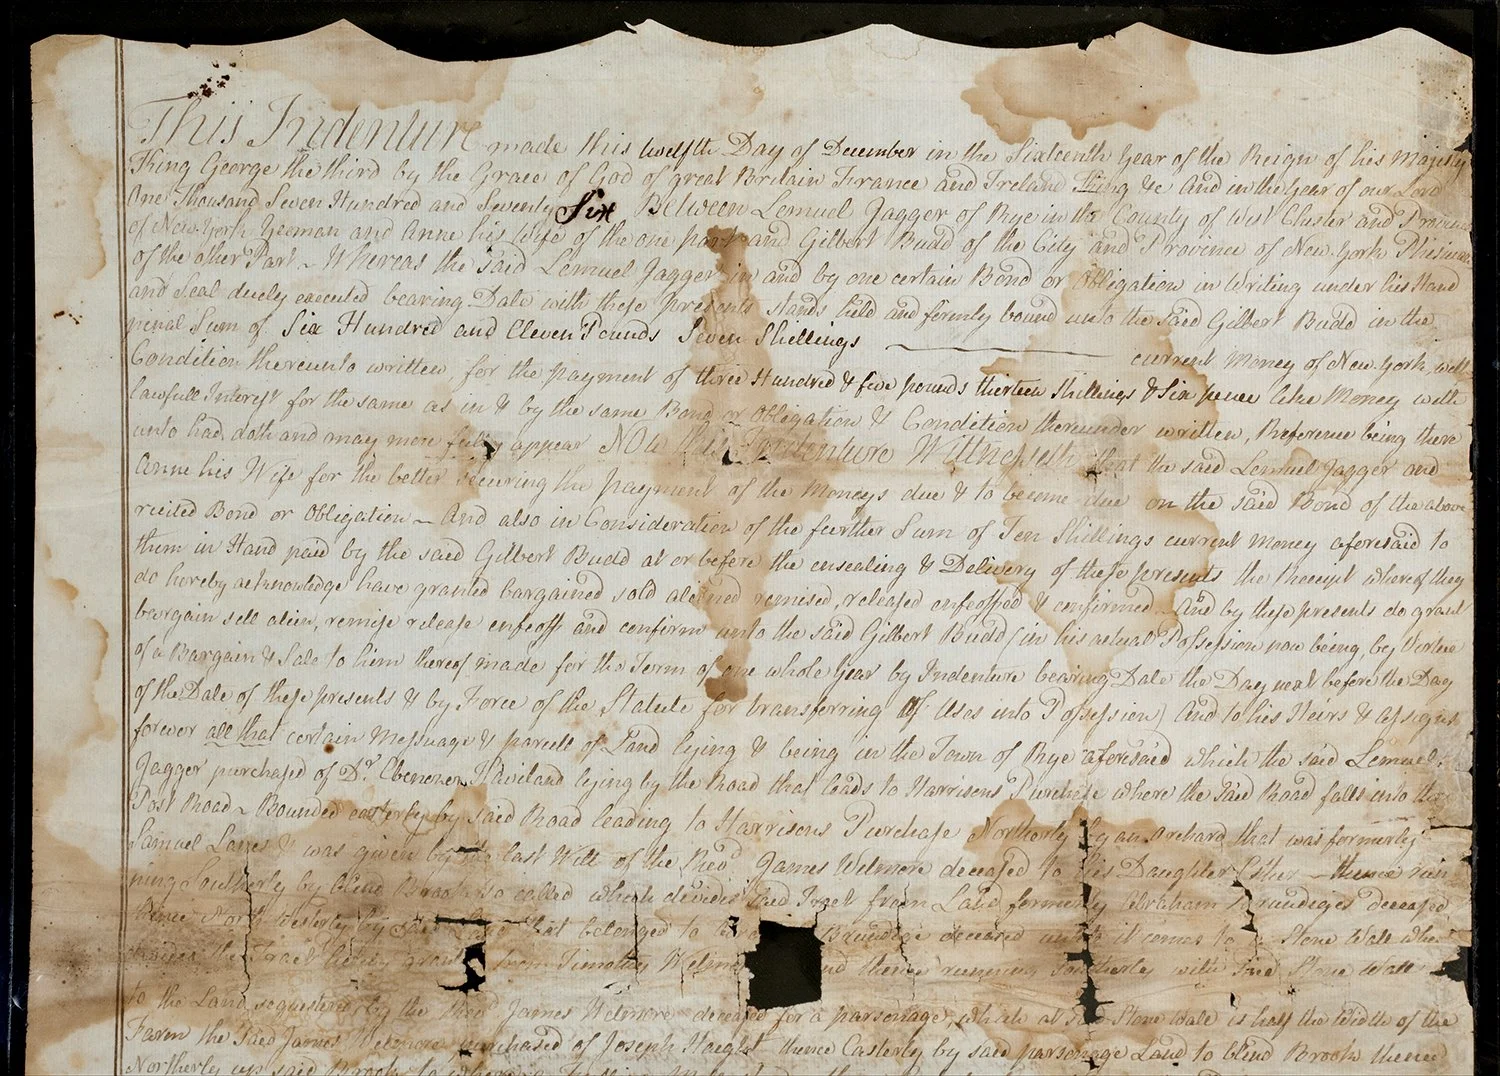 This Indenture made this twelfth Day of December in the Sixteenth Year of the Reign of his Majesty
King George the third by the Grace of God of great Britain France and Ireland King &c And in the Year of our Lord
One Thousand Seven Hundred and Seventy Six Between Lemuel Jagger of Rye in the County of West Chester and Province
of New York Yeoman and Anne his Wife of the one part and Gilbert Budd of the City and Province of New York
of the other Part ~ Whereas the said Lemuel Jagger in and by one certain Bond or Obligation in Writing under his Hand
and Seal duely executed bearing Date with these presents stands held and firmly bound unto the said Gilbert Budd in the
penal Sum of Six Hundred and Eleven Pounds Seven Shillings current Money of New York, with
Condition thereunto written, for the payment of three Hundred & five pounds thirteen Shillings & Six pence like Money with
lawfull Interest for the same as in & by the same Bond or Obligation & Condition thereunder written, Reference being there
unto had doth and may more fully appear Now this Indenture Wittnesseth that the said Lemuel Jagger and
Anne his Wife for the better securing the payment of the Moneys due & to become due on the said Bond of the above
recited Bond or Obligation ~ And also in Consideration of the further Sum of Ten Shillings current Money aforesaid to
them in Hand paid by the said Gilbert Budd at or before the ensealing & Delivery of these presents the Receipt whereof they
do hereby acknowledge have granted bargained sold aliened remised, released enfeoffed & confirmed And by these presents do grant
bargain sell alien, remise release enfeoff and confirm unto the said Gilbert Budd (in his actual Possession now being, by Vertue
of a Bargain & Sale to him thereof made for the Term of one whole Year by Indenture bearing Date the Day next before the Day
of the Date of these presents & by Force of the Statute for transferring of Uses into Possession) And to his Heirs & Assigns
forever all that certain Messuage & parcell of Land lying & being in the Town of Rye aforesaid which the said Lemuel
Jagger purchased of Dr. Ebenezer Haviland lying by the Road that leads to Harrisons Purchase where the said Road falls into the
Post Road ~ Bounded easterly by said Road leading to Harrisons Purchase Northerly by an Orchard that was formerly
Samuel Lanes & was given by the last Will of the Revd James Wetmore deceased to his Daughter Esther ~ thence run
ning Southerly by blind Brook so called which devides said Tract from Land formerly Abraham Brundiges deceased
thence North Westerly by said Land that belonged to Brundige deceased untill it comes to a Stone Wall which
devides the Tract herein granted from Timothy Wetmore and thence running Southerly with said Stone Wall
to the Land sequestered by the Revd James Wetmore deceased for a parsonage, which at said Stone Wall is half the Width of the
Farm the said James Wetmore purchased of Joseph Haight thence Easterly by said parsonage Land to blind Brook thence
Northerly up said Brook to where